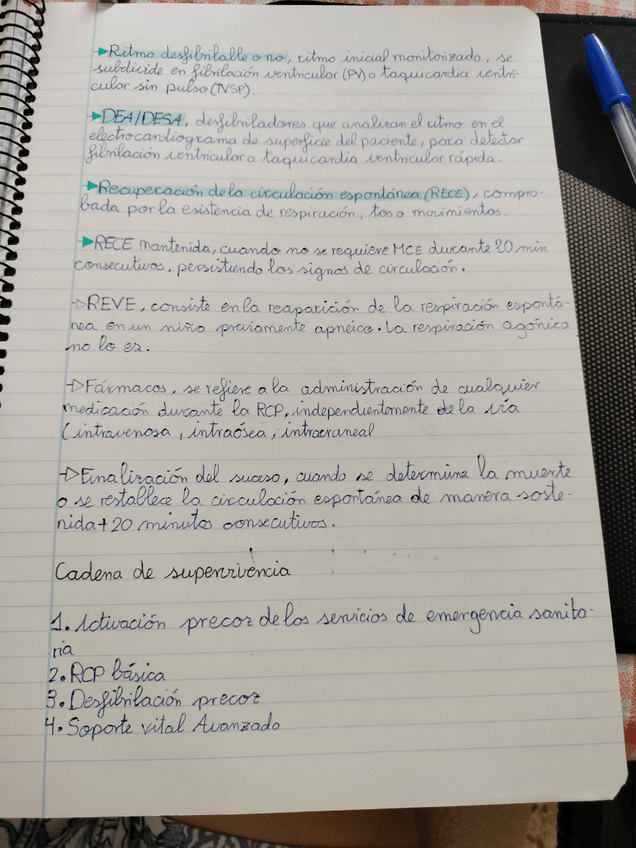 →Ritmo desfibrilable o no, ritmo inicial monitorizado, se
subdivide en fibrilación ventricular (FV) o taquicardia ventri-
cular sin pulso (TVSP)
→DEA/DESA, desfibriladores que analizan el ritmo en el
electrocardiograma de superficie del paciente, para detectar
fibrilación ventricular o taquicardia ventricular rápida.
→Recuperación de la circulación espontánea (RECE), compro-
bada por la existencia de respiración, tos o movimientos.
→RECE mantenida, cuando no se requiere MCE durante 20 min
consecutivos, persistiendo los signos de circulación.
→REVE, consiste en la reaparición de la respiración espontá-
nea en un niño previamente apneico. La respiración agónica
no lo es.
→Fármacos, se refiere a la administración de cualquier
medicación durante la RCP, independientemente de la vía
(intravenosa, intraósea, intracraneal
→Finalización del suceso, cuando se determina la muerte
o se restablece la circulación espontánea de manera soste-
nida + 20 minutos consecutivos.
Cadena de supervivencia
1. Activación precoz de los servicios de emergencia sanita-
ria
2. RCP básica
3. Desfibrilación precoz
4. Soporte vital Avanzado